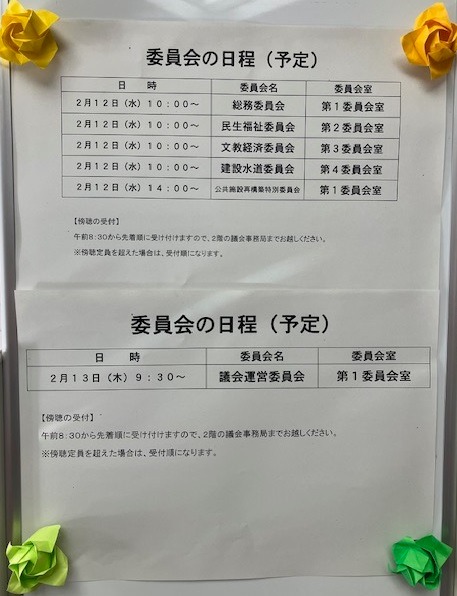 委員会の日程（予定）
日　　時　委員会名　委員会室
２月１２日（水）１０：００～　総務委員会　第１委員会室
２月１２日（水）１０：００～　民生福祉委員会　第２委員会室
２月１２日（水）１０：００～　文教経済委員会　第３委員会室
２月１２日（水）１０：００～　建設水道委員会　第４委員会室
２月１２日（水）１４：００～　公共施設再構築特別委員会　第１委員会室
【傍聴の受付】
午前8：30から先着順に受け付けますので、2階の議会事務局までお越しください。
※傍聴定員を超えた場合は、受付順になります。
委員会の日程（予定）
日　　時　委員会名　委員会室
２月１３日（木）９：３０～　議会運営委員会　第１委員会室
【傍聴の受付】
午前8：30から先着順に受け付けますので、2階の議会事務局までお越しください。
※傍聴定員を超えた場合は、受付順になります。